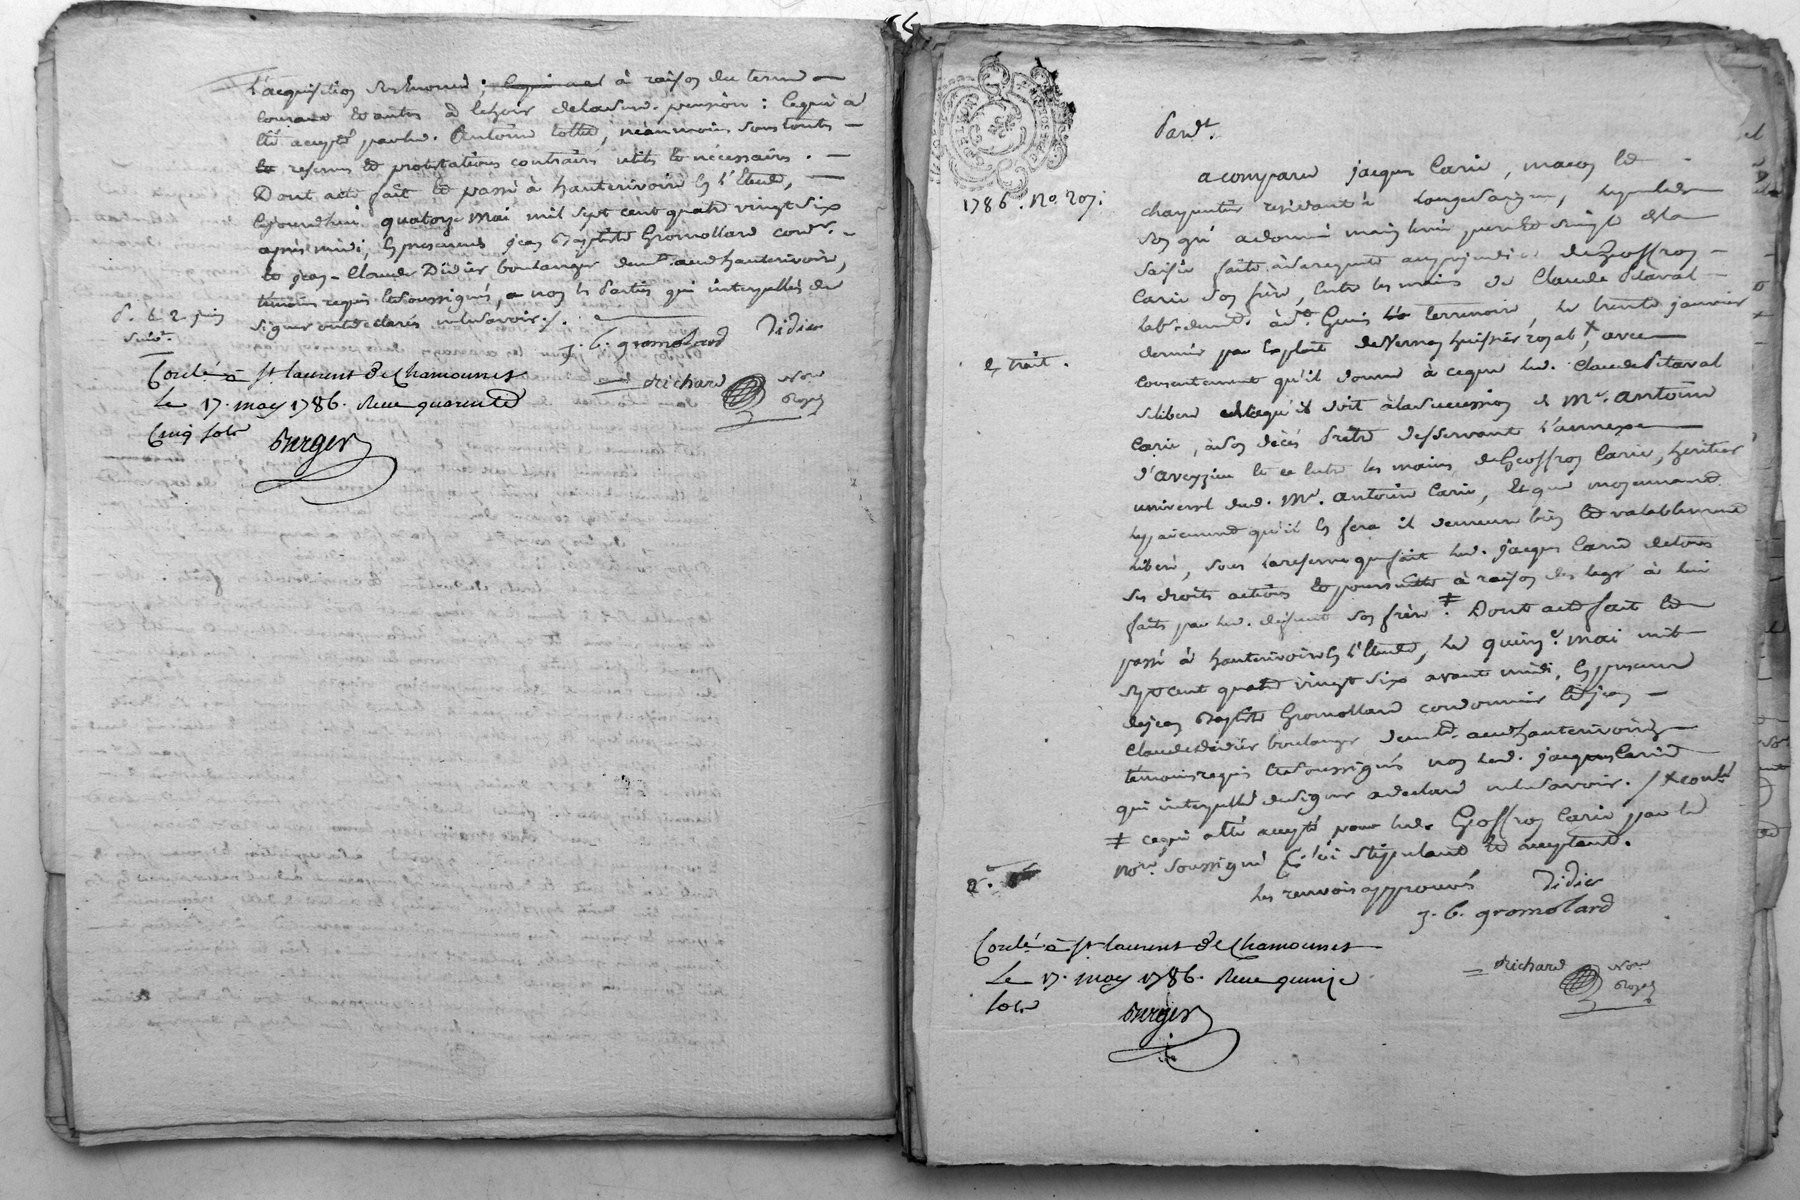 L'acquisition à raison du terme
courant et autres à échoir pension : ce qui a
été accepté par led. Antoine néanmoins sous toutes
les reserves et protestations contraires utiles et nécessaires.
Dont acte fait et passé à hauterivoire en l'Etude,
cejourdhui quatorze Mai mil sept cent quatre vingt six
après midi, en presence de jean Baptiste Gromollard cordr.
et jean-Claude Didier boulanger demt. aud. hauterivoire,
temoins requis et soussignés, et non les parties qui interpellés de
signer ont declarés ne le savoir ./.
juin
j. b. gromolard Didier
Conlé à st. laurent de Chamousset
Le 17. may 1786. Reçu quarente
Cinq sols
Richard Nore
Royal
Burger
Pardt.
1786. No. 207.
a comparu jacques Carie, maçon et
charpentier residant à
son gré a donné main levée pure et simple de la
saisie faite à sa requete au prejudice de Geoffroy
Carie son frere, entre les mains de Claude Pitaval
lab. demt. à st. Genis terrenoire, le trente janvier
dernier par exploit de Vernay huissier royal, X avec
Extrait.
consentement qu'il donne à ce que led. Claude Pitaval
se libere de ce qu'il doit à la succession de Mre. Antoine
Carie, à son décès Pretre desservant l'annexe
d'aveyzieu et ce entre les mains de Geoffroy Carie, heritier
universel dud. Mre. Antoine Carie, et que moyennant
le payement qu'il en fera il demeure bien et valablement
liberé, sous la reserve que fait led. jacques Carie de tous
ses droits actions et poursuittes à raison des legs à lui
faits par led. defunt son frère. ‡ Dont acte fait et
passé à hauterivoire en l'Etude, le quinze mai mil
sept cent quatre vingt six avant midi, en presence
de jean Baptiste Gromollard cordonnier et jean
Claude Didier boulanger demt. aud. hauterivoire
temoins requis et soussignés non led. jacques Carie
qui interpellé de signer a declaré ne le savoir. / X
‡ ce qui a été accepté pour led. Geoffroy Carie par le
nore. soussigné stipulant et acceptant.
Les renvois approuvés Didier
j. b. gromolard
Conlé à st. laurent de Chamousset
Le 17. may 1786. Reçu quinze
sols
Richard Nore
Royal
Burger